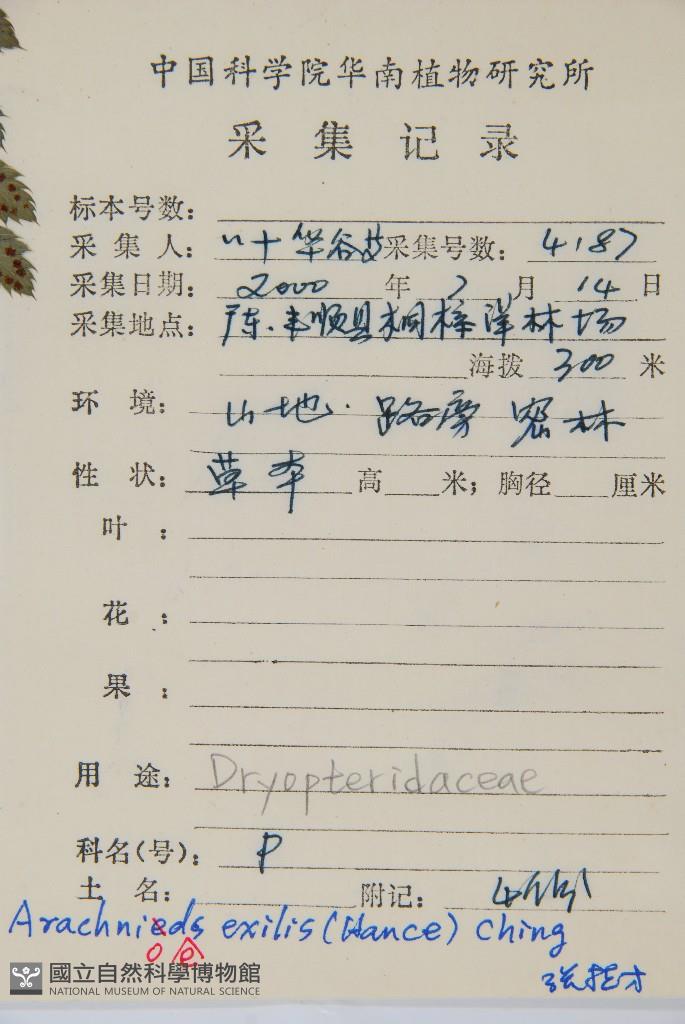 中国科学院华南植物研究所
采集记录
标本号数:
采集人: 采集号数: 4187
采集日期: 2000 年 7 月 14 日
采集地点: 广东.丰顺县桐梓洋林场
海拨 300 米
环境: 山地.路旁密林
性状: 草本 高 米; 胸径 厘米
叶:
花:
果:
用途: Dryopteridaceae
科名(号): P
土名: 附记: 4份
Arachni ds exilis (Hance) Ching
o e
國立自然科學博物館
NATIONAL MUSEUM OF NATURAL SCIENCE